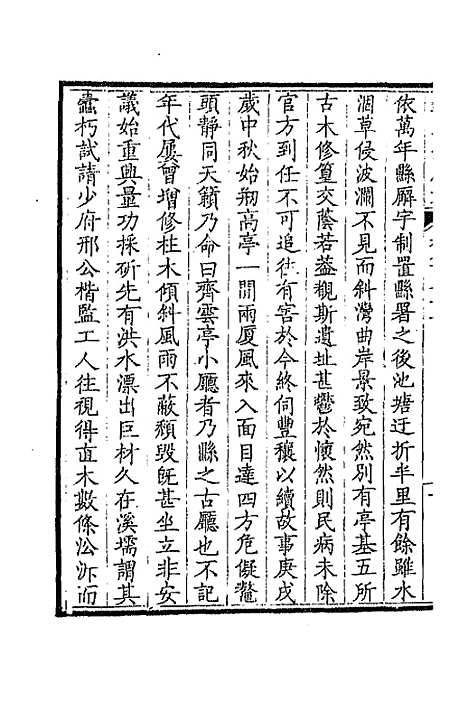 依萬年縣廨宇制置縣署之後池塘迂折半里有餘雖水
涸草侵波瀾不見而斜灣曲岸景致宛然别有亭基五所
古木修篁交蔭若蓋覩斯遺址甚鬱於懷然則民病未除
官方到任不可追往有害於今終伺豐穰以續故事庚戌
歲中秋始剏高亭一間兩厦風來入面目達四方危儗鼇
頭靜同天籟乃命曰齊雲亭小廳者乃縣之古廳也不記
年代屢曾增修柱木傾斜風雨不蔽頽毀旣甚坐立非安
議始重興量功採斫先有洪水漂出巨材久在溪壖謂其
蠹朽試請少府邢公楷監工人往視得直木數條㳂泝而